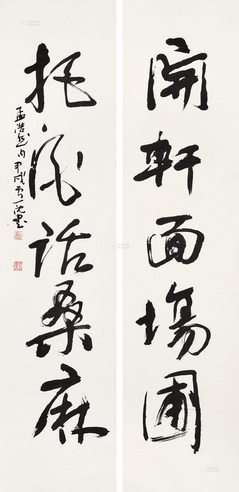 開軒面塲圃
把酒話桑麻
孟浩然句